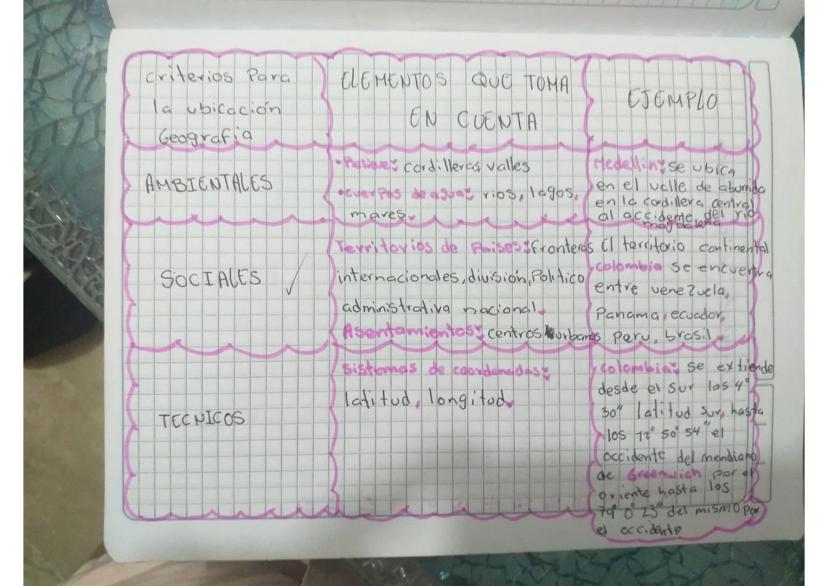 criterios Para
la ubicación
Geografia
ELEMENTOS QUE TOMA
EN CUENTA
EJEMPLO
AMBIENTALES
cordilleras valles
• cuerpos de agua: rios, lagos,
mares.
Medellin: se ubica
en el valle de aburrido
en la cordillera central
al accidente del rio
magdalena
SOCIALES
Territorios de Paises: fronteras
internacionales, división, Politico
administrativa nacional.
Asentamientos: centros urbanos
El territorio continental
colombia se encuentra
entre venezuela,
Panama, ecuador,
Peru, brasil.
TECNICOS
Sistemas de coordenadas:
latitud, longitud.
colombia: se extiende
desde el sur los 4°
30" latitud sur, hasta
los 12° 50' 54" el
occidente del meridiano
de Greenwich por el
oriente hasta los
79° 0' 23" del mismo por
el occidente